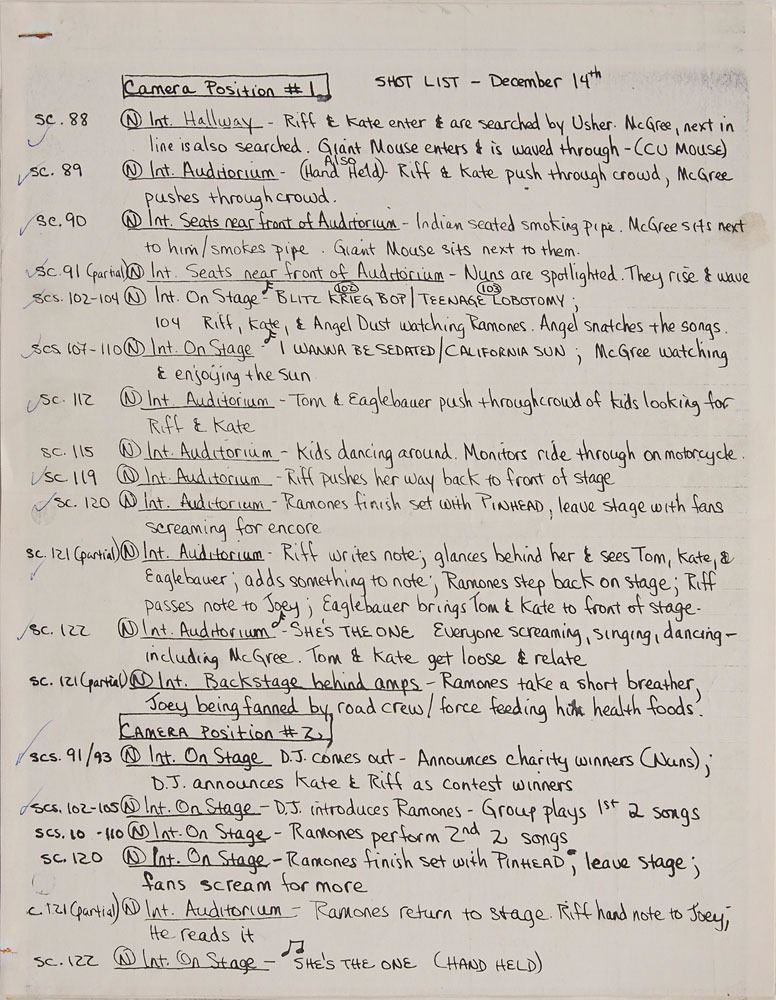 Camera Position #1 SHOT LIST - December 14th
sc. 88 (N) Int. Hallway - Riff & Kate enter & are searched by Usher. McGree, next in
line is also searched. Giant Mouse enters & is waved through - (CU MOUSE)
sc. 89 (N) Int. Auditorium - (Hand Also Held) - Riff & Kate push through crowd, McGree
pushes through crowd.
sc. 90 (N) Int. Seats near front of Auditorium - Indian seated smoking pipe. McGree sits next
to him/smokes pipe. Giant Mouse sits next to them.
sc. 91 (partial) (N) Int. Seats near front of Auditorium - Nuns are spotlighted. They rise & wave
scs. 102-104 (N) Int. On Stage ♪ - BLITZ KRIEG BOP (102) / TEENAGE LOBOTOMY (103);
104 Riff, Kate, & Angel Dust watching Ramones. Angel snatches the songs.
scs 107-110 (N) Int. On Stage ♪ I WANNA BE SEDATED/CALIFORNIA SUN; McGree watching
& enjoying the sun
sc. 112 (N) Int. Auditorium - Tom & Eaglebauer push through crowd of kids looking for
Riff & Kate
sc. 115 (N) Int. Auditorium - Kids dancing around. Monitors ride through on motorcycle.
sc. 119 (N) Int. Auditorium - Riff pushes her way back to front of stage
sc. 120 (N) Int. Auditorium - Ramones finish set with PINHEAD, leave stage with fans
screaming for encore
sc. 121 (partial) (N) Int. Auditorium - Riff writes note; glances behind her & sees Tom, Kate, &
Eaglebauer; adds something to note; Ramones step back on stage; Riff
passes note to Joey; Eaglebauer brings Tom & Kate to front of stage -
sc. 122 (N) Int. Auditorium ♪ - SHE'S THE ONE Everyone screaming, singing, dancing -
including McGree. Tom & Kate get loose & relate
sc. 121 (partial) (N) Int. Backstage behind amps - Ramones take a short breather,
Joey being fanned by road crew/force feeding him health foods.
CAMERA POSITION #2
scs. 91/93 (N) Int. On Stage D.J. comes out - Announces charity winners (Nuns);
D.J. announces Kate & Riff as contest winners
scs. 102-105 (N) Int. On Stage - D.J. introduces Ramones - Group plays 1st 2 songs
scs. 10 -110 (N) Int. On Stage - Ramones perform 2nd 2 songs
sc. 120 (N) Int. On Stage - Ramones finish set with PINHEAD; leave stage;
fans scream for more
c. 121 (partial) (N) Int. Auditorium - Ramones return to stage. Riff hand note to Joey;
He reads it
sc. 122 (N) Int. On Stage - ♫ SHE'S THE ONE (HAND HELD)